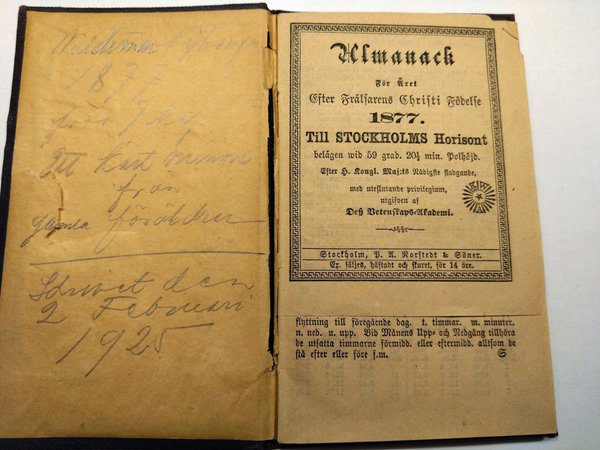 1877
född
Ett kärt minne
från
gamla föräldrar
Skrivet den
2 Februari
1925
Almanack
För Året
Efter Frälsarens Christi Födelse
1877.
Till STOCKHOLMS Horisont
belägen wid 59 grad. 20½ min. Polhöjd.
Efter H. Kongl. Maj:ts Nådigste stadgande,
med uteslutande privilegium,
utgifven af
Deß Vetenskaps-Akademi.
Stockholm, P. A. Norstedt & Söner.
Ex. säljes, häftadt och skuret, för 14 öre.
flyttning till föregående dag. t. timmar. m. minuter.
n. ned. u. upp. Vid Månens Upp- och Nedgång tillhöra
de utsatta timmarne förmidd. eller eftermidd. alltsom de
stå efter eller före f.m. S